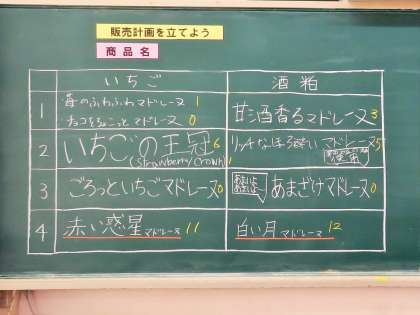 販売計画を立てよう
商品名
いちご 酒粕
1 苺のふわふわマドレーヌ 1
チョコをちょこっとマドレーヌ 0
甘酒香るマドレーヌ 3
2 いちごの王冠 6
(Strawberry Crown)
リッチなほろ酔いマドレーヌ 5
3 ごろっといちごマドレーヌ 0
あまざけマドレーヌ 0
4 赤い惑星マドレーヌ 11
白い月マドレーヌ 12